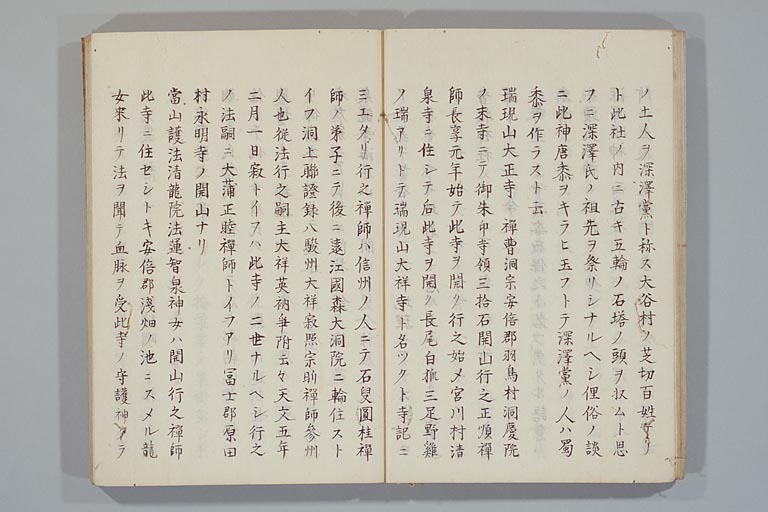 ノ土人ヲ深澤黨ト称ス大谷村ノ芝切百姓ナリ
ト此社ノ内ニ古キ五輪ノ石塔ノ頭ヲ収ムト思
フニ深澤氏ノ祖先ヲ祭リシナルヘシ俚俗ノ談
ニ此神唐黍ヲキラヒ玉フトテ深澤黨ノ人ハ蜀
黍ヲ作ラスト云
瑞現山大正寺 禪曹洞宗安倍郡羽鳥村洞慶院
ノ末寺ニテ御朱印寺領三拾石開山行之正順禪
師長享元年始テ此寺ヲ開ク行之始メ宮川村清
泉寺ニ住シテ后此寺ヲ開ク長尾白狐三足野雞
ノ瑞アリトテ瑞現山大祥寺ト名ツクト寺記ニ
三エタリ行之禪師ハ信州ノ人ニテ石叟圓桂禪
師ノ弟子ニテ後ニ遠江國森大洞院ニ輪住スト
イフ洞上聯證録八駿州大祥寂照宗肕禪師參州
人也從法行之嗣主大祥英衲爭附云々天文五年
二月一日寂トイフハ此寺ノ二世ナルヘシ行之
ノ法嗣ニ大蒲正睦禪師トイフアリ冨士郡原田
村永明寺ノ開山ナリ
當山護法清龍院法蓮智泉神女ハ開山行之禪師
此寺ニ住セシトキ安倍郡淺畑ノ池ニスメル龍
女来リテ法ヲ聞テ血脉ヲ受此寺ノ守護神タラ